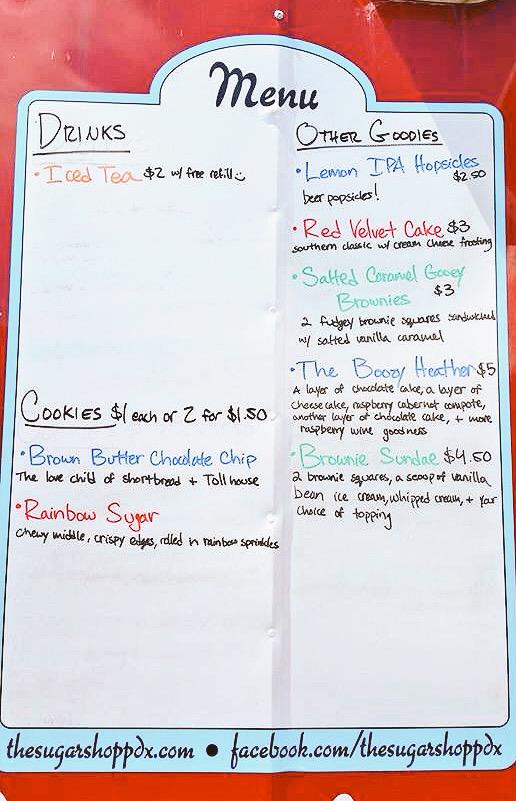 Menu
DRINKS
• Iced Tea $2 w/ free refill :)
COOKIES $1 each or 2 for $1.50
• Brown Butter Chocolate Chip
The love child of shortbread + Toll house
• Rainbow Sugar
chewy middle, crispy edges, rolled in rainbow sprinkles
OTHER GOODIES
• Lemon IPA Hopsicles
$2.50
beer popsicles!
• Red Velvet Cake $3
southern classic w/ cream cheese frosting
• Salted Caramel Gooey
Brownies $3
2 fudgey brownie squares sandwiched
w/ salted vanilla caramel
• The Boozy Heather $5
A layer of chocolate cake, a layer of
cheesecake, raspberry cabernet compote,
another layer of chocolate cake, + more
raspberry wine goodness
• Brownie Sundae $4.50
2 brownie squares, a scoop of vanilla
bean ice cream, whipped cream, + your
choice of topping
thesugarshoppdx.com • facebook.com/thesugarshoppdx